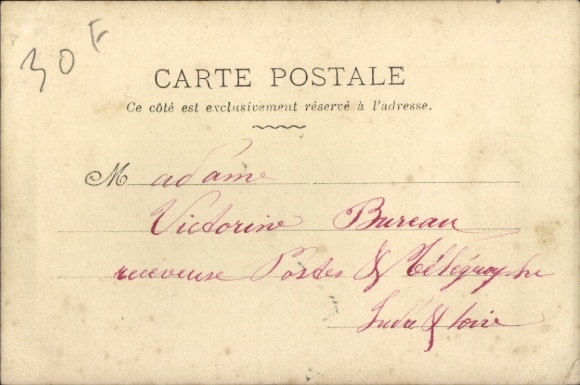 30 F
CARTE POSTALE
Ce côté est exclusivement réservé à l'adresse.
Madame
Victorine Bureau
receveuse Postes & Télégraphe
Indre & Loire